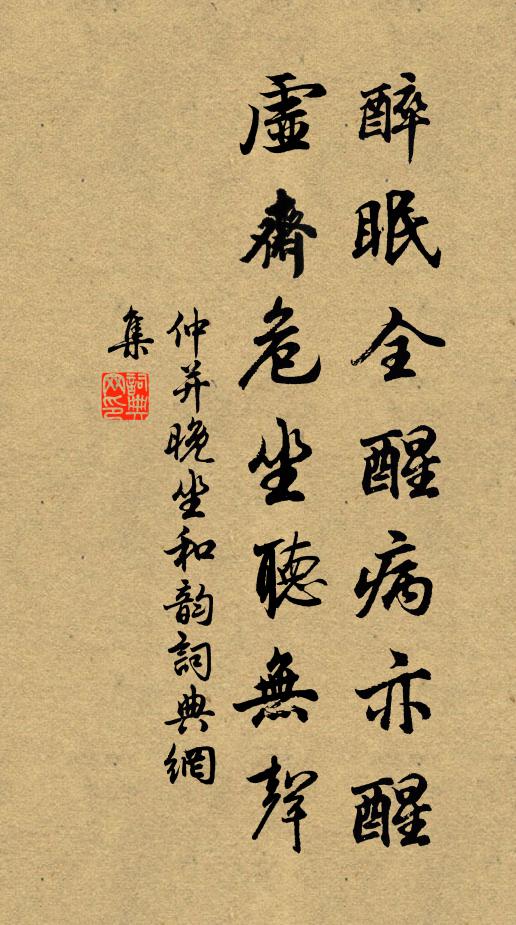 醉眠全醒病亦醒
虛齋危坐聽無聲
仲并晚坐和韵詞典網
集
詞典网印